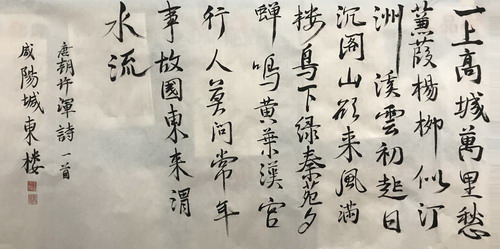 一上高城萬里愁
蒹葭楊柳似汀
洲溪雲初起日
沉閣山欲來風滿
楼鳥下綠秦苑夕
蟬鳴黄葉漢宮
行人莫問當年
事故國東來渭
水流
唐朝許渾詩一首
咸陽城東楼